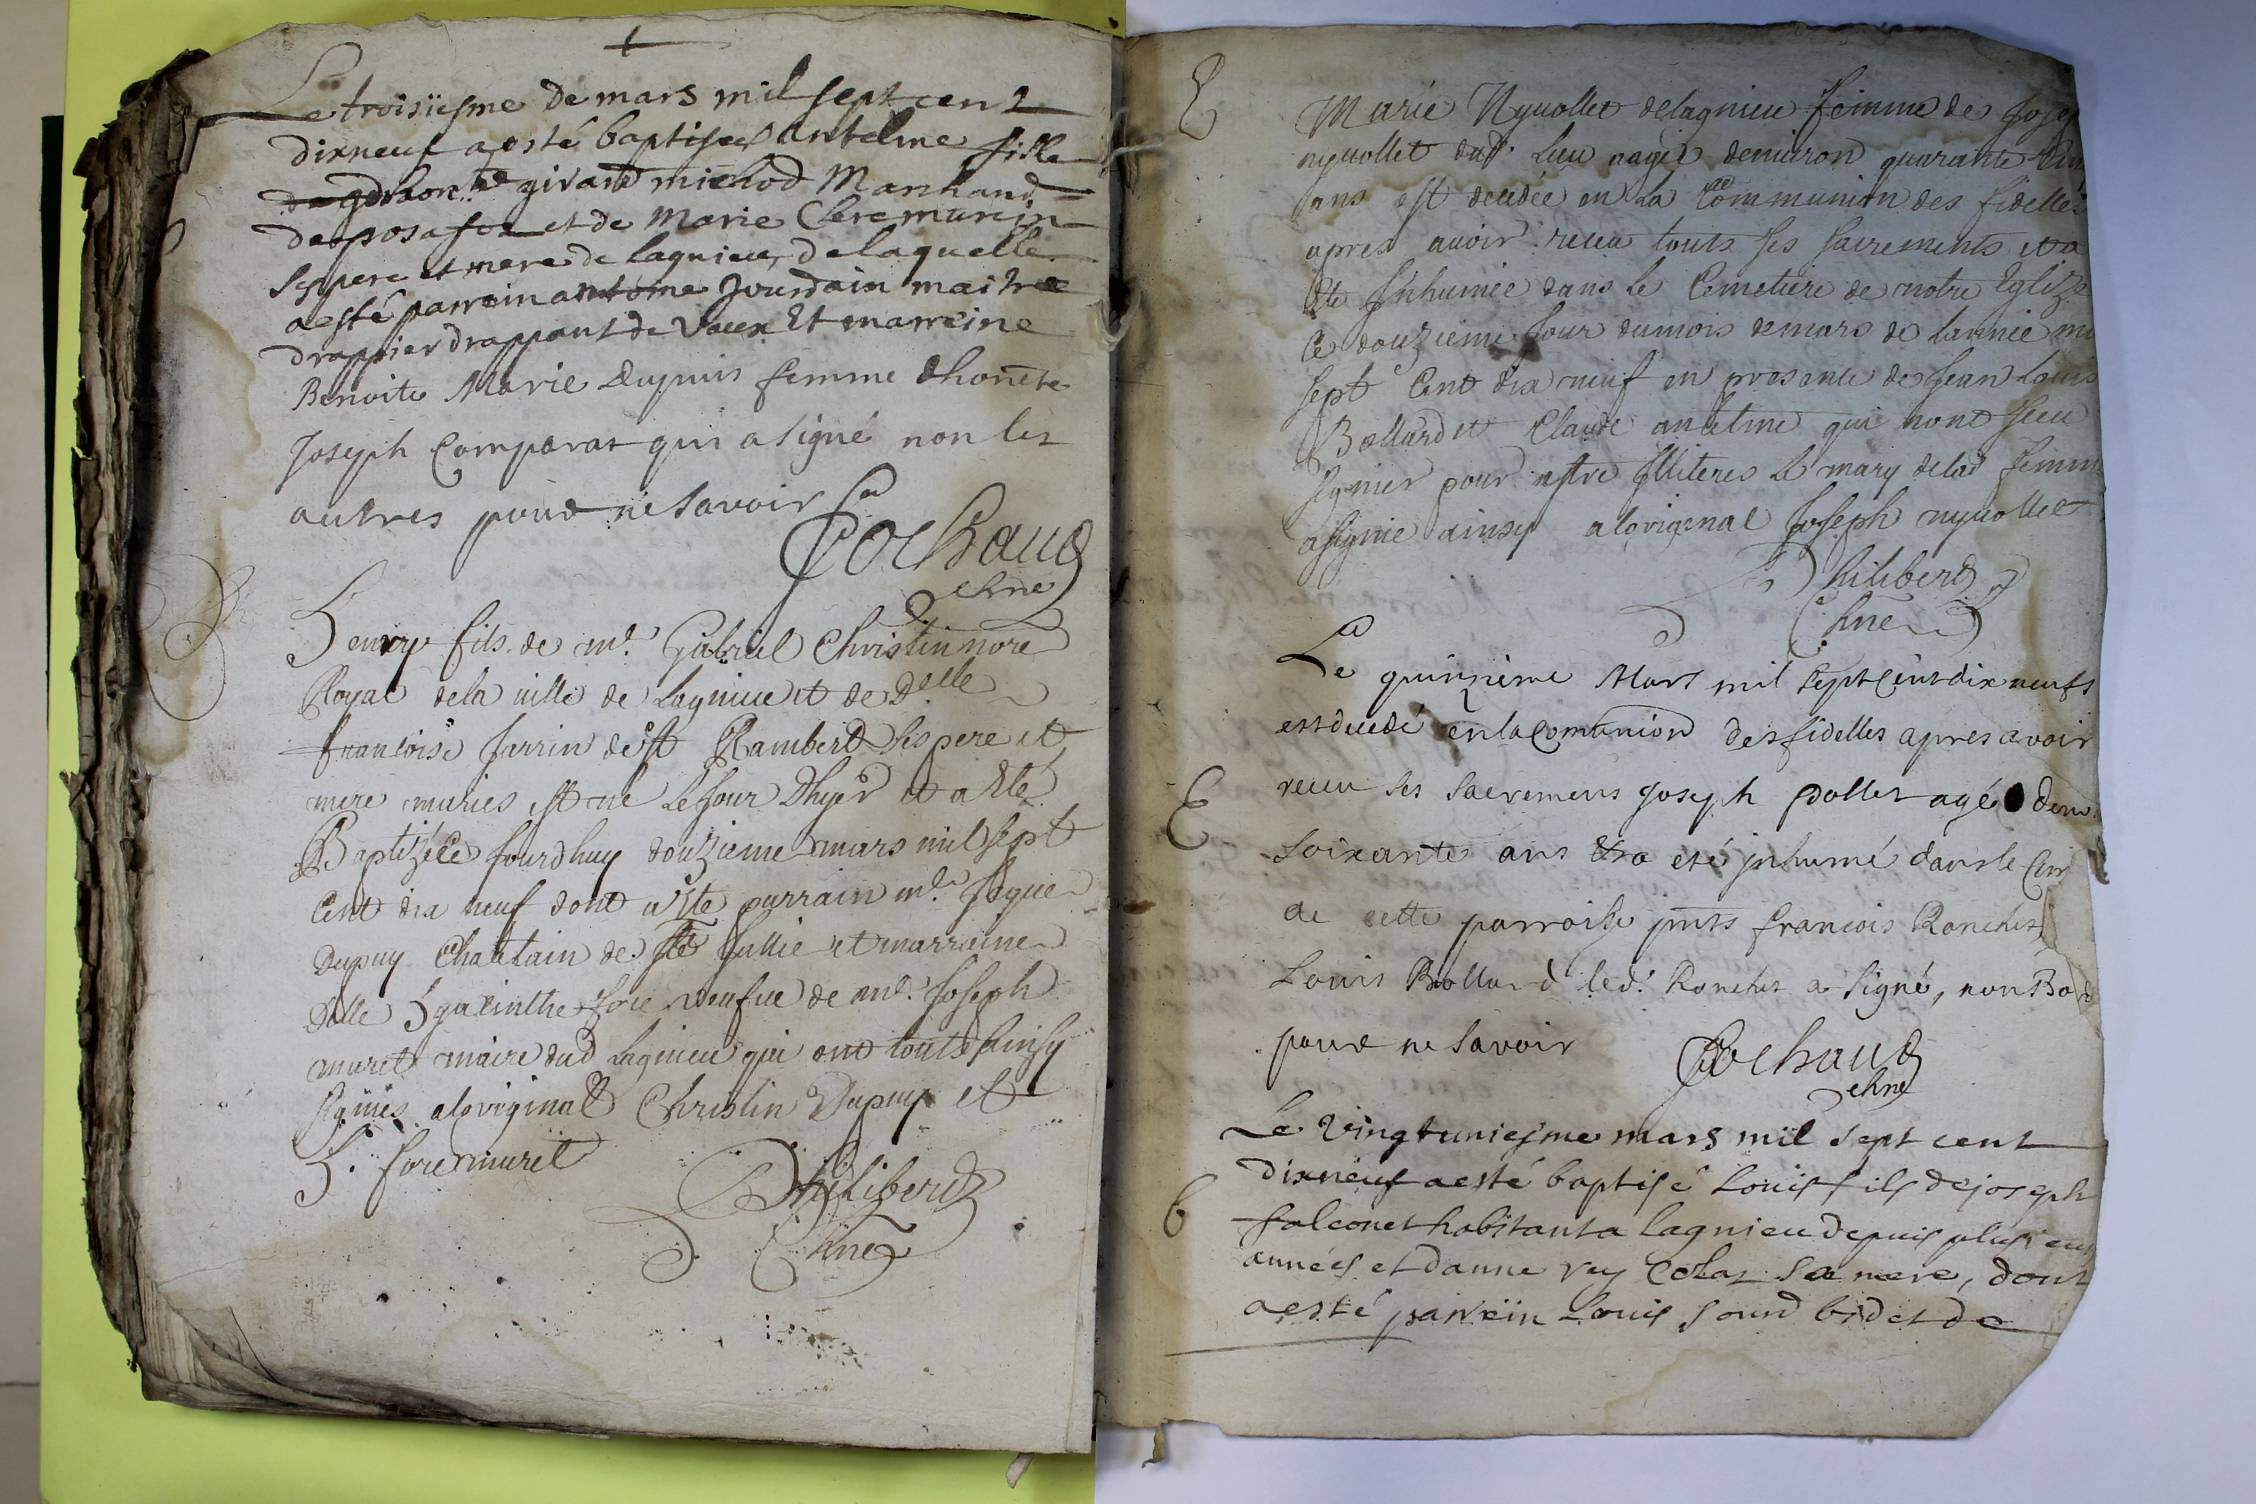 Le troisiesme de mars mil sept cent
dixneuf a esté baptisee antelme fille
de girard michod Marchand
et de Marie Clere murcin
ses pere et mere de lagnieu, de laquelle
a esté parrein antoine Jourdain maitre
drappier drappant de Vaux Et marreine
Benoite Marie Dupuis femme dhonete
Joseph Comparat qui a signé non les
autres pour ne savoir
Cochaud
chne
henry fils de mr. Gabriel Christin nore
Royal de la ville de Lagnieu et de Delle
francoise Jarrin de st Rambert ses pere et
mere maries est ne le Jour Dhyer et a Ete
Baptizé ce Jourdhuy douzieme mars mil sept
Cent dix neuf dont a Ete parrain mr. Jaque
Dupuy Chatelain de ste Jullie et marraine
Delle hyacinthe fore veufue de mr. Joseph
muret maire dud Lagnieu qui ont touts Ainsy
signés a loriginal Christin Dupuy et
h. fore muret
Philiberd
Chne
E
Marie Nyuollet de lagnieu femme de Josep
nyuollet dud. Lieu aagée denuiron quarante
ans est decedée en la Communion des fidelles
apres auoir receu touts ses sacrements et a
Ete Inhumée dans le Cemetiere de notre Eglize
Ce douzieme Jour du mois de mars de lannée mil
sept Cent dix neuf en presence de Jean Louis
Bollard et Claude antelme qui nont sceu
signer pour estre Illiteres le mary de lad femme
a signé ainsy a loriginal Joseph nyuollet
Philiberd
Chne
Le quinzieme Mars mil sept cent dix neufs
est decedé en la Comunion des fidelles apres avoir
receu ses sacremens Joseph pollet agé denv
E
soixante ans & a eté inhumé dans le Cim
de cette parroisse pnts francois Ronchet
Louis Bollard led. Ronchet a signé, non Bo
pour ne savoir
Cochaud
chne
Le vingtuniesme mars mil sept cent
dixneuf a esté baptisé Louis fils de joseph
b
falconet habitant a lagnieu depuis plusieurs
années et danne rey Colat sa mere, dont
a esté parrein Louis Jourd bidet de